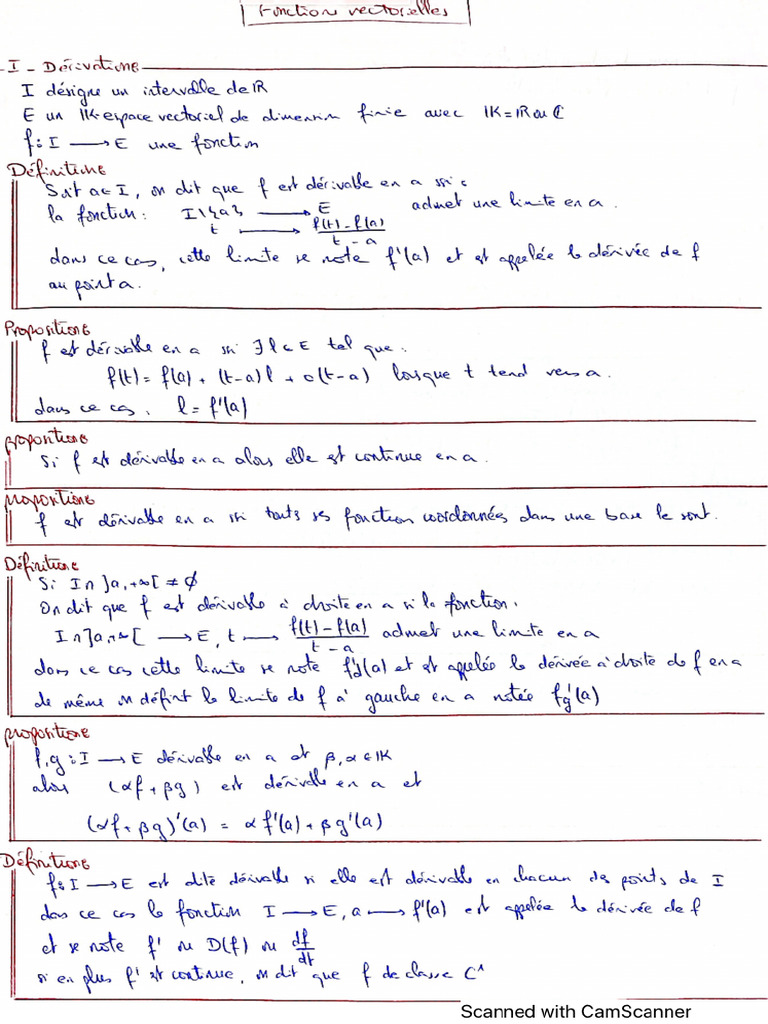 Fonction vectorielles
I - Dérivations
I désigne un intervalle de IR
E un IK-espace vectoriel de dimension finie avec IK = IR ou ℂ
f : I ⟶ E une fonction
Définitions
Soit a ∈ I, on dit que f est dérivable en a ssi :
la fonction : I\{a} ⟶ E admet une limite en a.
t ⟶ (f(t) - f(a))/(t - a)
dans ce cas, cette limite se note f'(a) et est appelée la dérivée de f
au point a.
Propositions
f est dérivable en a ssi ∃ l ∈ E tel que :
f(t) = f(a) + (t-a) l + o(t-a) lorsque t tend vers a.
dans ce cas, l = f'(a)
propositions
Si f est dérivable en a alors elle est continue en a.
propositions
f est dérivable en a ssi touts ses fonction coordonnées dans une base le sont.
Définitions
Si I ∩ ]a,+∞[ ≠ ∅
On dit que f est dérivable à droite en a si la fonction.
I ∩ ]a,+∞[ ⟶ E, t ⟶ (f(t) - f(a))/(t - a) admet une limite en a
dans ce cas cette limite se note f'd(a) et est appelée la dérivée à droite de f en a
de même on définit la limite de f à gauche en a notée f'g(a)
propositions
f,g : I ⟶ E dérivable en a et β,α ∈ IK
alors (αf + βg) est dérivable en a et
(αf + βg)'(a) = α f'(a) + β g'(a)
Définitions
f : I ⟶ E est dite dérivable si elle est dérivable en chacun des points de I
dans ce cas la fonction I ⟶ E, a ⟶ f'(a) est appelée la dérivée de f
et se note f' ou D(f) ou df/dt
si en plus f' est continue, on dit que f de classe C¹
Scanned with CamScanner